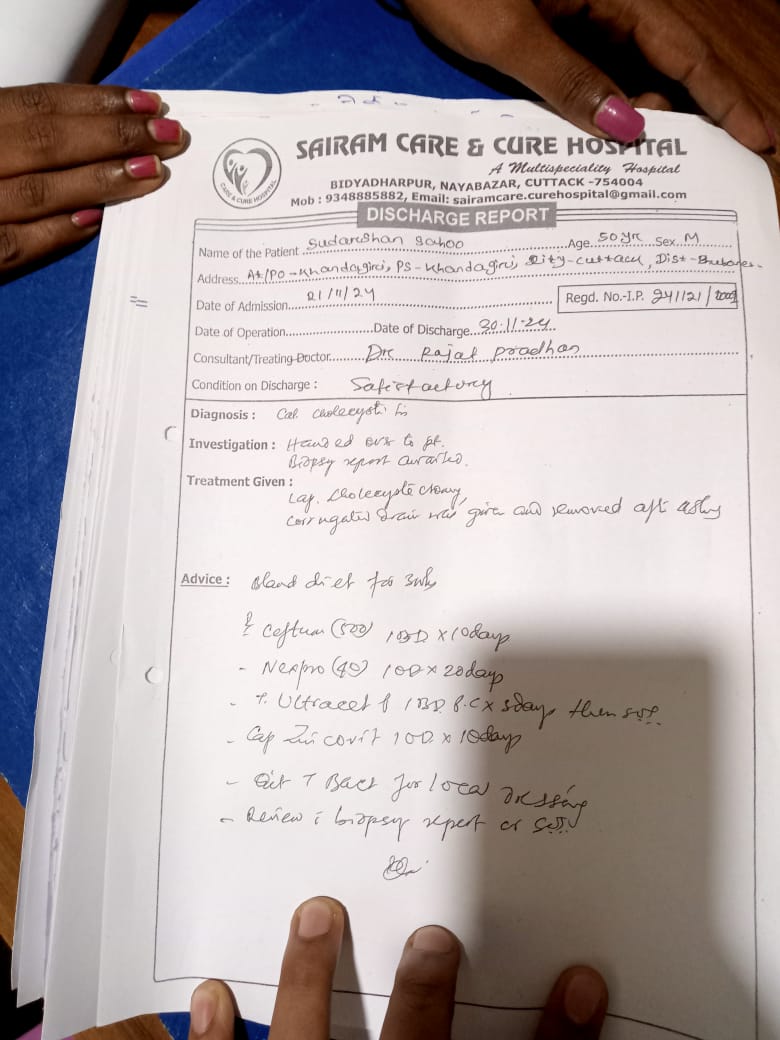 CARE & CURE HOSPITAL
SAIRAM CARE & CURE HOSPITAL
A Multispeciality Hospital
BIDYADHARPUR, NAYABAZAR, CUTTACK -754004
Mob : 9348885882, Email: sairamcare.curehospital@gmail.com
DISCHARGE REPORT
Name of the Patient Sudarshan Sahoo Age 50 yr Sex M
Address At/PO - Khandagiri, PS - Khandagiri, City - Cuttack, Dist -
Date of Admission 21/11/24 Regd. No.-I.P. 241121/
Date of Operation Date of Discharge 30.11.24
Consultant/Treating Doctor Dr. Rajat Pradhan
Condition on Discharge : Satisfactory
Diagnosis : Cal. Cholecystitis
Investigation : Handed over to pt.
Biopsy report awaited.
Treatment Given :
Lap. Cholecystectomy
corrugated drain was given and removed aft
Advice : Bland diet for 3wks
Ceftum (500) 1BD x 10days
- Nexpro (40) 1OD x 20days
- T. Ultracet 1BD P.C x days then sos
- Cap Zincovit 1OD x 10days
- Oint T Bact for local Dressing
- Review c biopsy report or sos